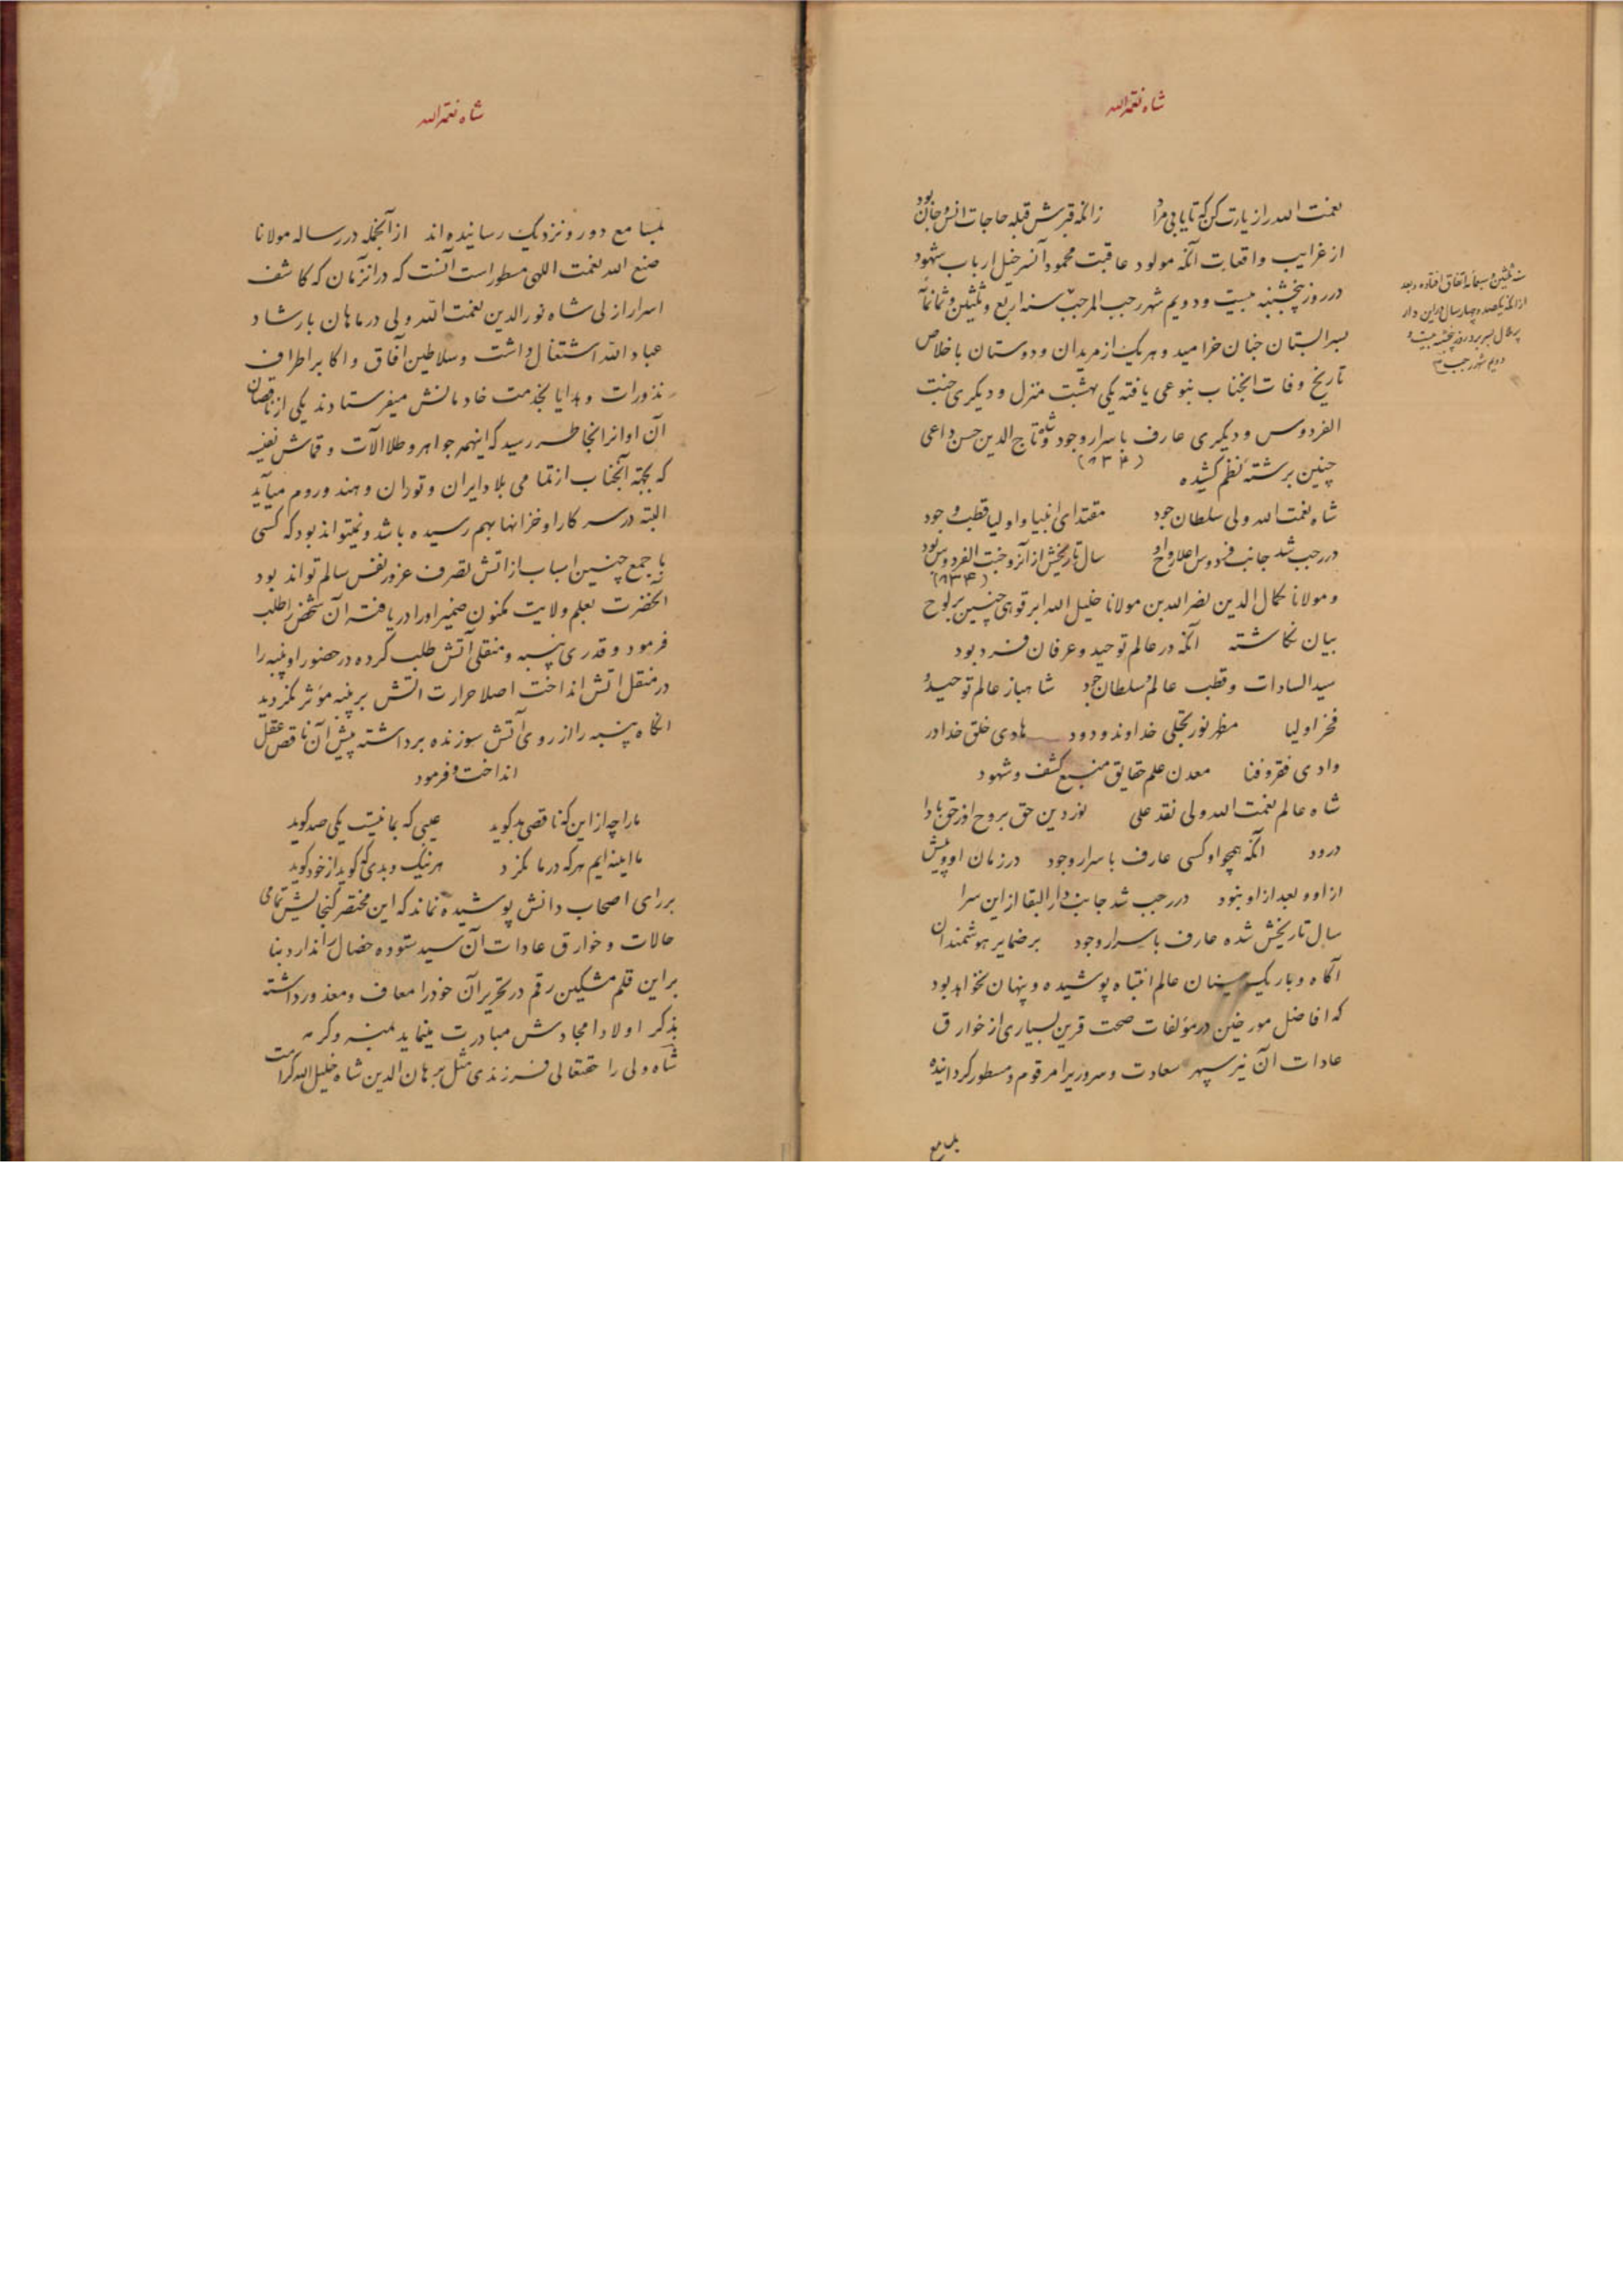 شاه نعمةالله
نعمت الله را زیارت کن که تا یابی مراد    زانکه قبرش قبله حاجات انس و جان بود
از غرایب واقعات آنکه مولود عاقبت محمود آنسر خیل ارباب شهود
در روز پنجشنبه بیست و دویم شهر رجب المرجب سنه اربع و ثلثین و ثمانمأ
بسرابستان جنان خرامید و هر یک از مریدان و دوستان با خلاص
تاریخ وفات انجناب بنوعی یافته یکی بهشت منزل و دیگری جنت
الفردوس و دیگری عارف باسرار وجود و تاج الدین حسن داعی
(۸۳۴)
چنین برشته نظم کشیده
شاه نعمت الله ولی سلطان جود    مقتدای انبیا و اولیا قطب وجود
در رجب شد جانب فردوس اعلا روح او    سال تاریخش از آنرو جنت الفردوس بود
(۸۳۴)
و مولانا کمال الدین نصرالله بن مولانا خلیل الله ابرقوهی چنین بر لوح
بیان نکاشته    آنکه در عالم توحید و عرفان فرد بود
سید السادات و قطب عالم و سلطان جود    شاهباز عالم توحید و
فخر اولیا    مظهر نور تجلی خداوند ودود    هادی خلق خدا در
وادی فقر و فنا    معدن علم حقایق منبع کشف و شهود
شاه عالم نعمت الله ولی نقد علی    نور دین حق بروح او ز حق بادا
درود    آنکه همچو او کسی عارف باسرار وجود    در زمان او و پیش
از او و بعد از او نبود    در رجب شد جانب دار البقا از این سرا
سال تاریخش شده عارف باسرار وجود    بر ضمایر هوشمندان
آکاه و باریک بینان عالم انتباه پوشیده و پنهان نخواهد بود
که افاضل مورخین در مؤلفات صحت قرین بسیاری از خوارق
عادات آن نیر سپهر سعادت و سروری را مرقوم و مسطور کردانیده
بمسامع
سنه ثلثین و سبعمائه اتفاق افتاده و بعد
از آنکه یکصد و چهار سال در این دار
پر ملال بسر برد روز پنجشنبه بیست و
دویم شهر رجب
شاه نعمةالله
بمسامع دور و نزدیک رسانیده اند    از آنجمله در رساله مولانا
صنع الله نعمت اللهی مسطور است آنست که در انزمان که کاشف
اسرار ازلی شاه نورالدین نعمت الله ولی در ماهان بارشاد
عباد الله اشتغال داشت و سلاطین آفاق و اکابر اطراف
نذورات و هدایا بخدمت خادمانش میفرستادند یکی از ناقصان
آن اوانرا بخاطر رسید که اینهمه جواهر و طلا آلات و قماش نفیسه
که بجهة آنجناب از تمامی بلاد ایران و توران و هند و روم میآید
البته در سرکار او خزانها بهم رسیده باشد و نمیتواند بود که کسی
با جمع چنین اسباب از اتش تصرف غرور نفس سالم تواند بود
آنحضرت بعلم ولایت مکنون ضمیر او را دریافته آن شخص را طلب
فرمود و قدری پنبه و منقلی آتش طلب کرده در حضور او پنبه را
در منقل اتش انداخت اصلا حرارت اتش بر پنبه مؤثر نکردید
آنکاه پنبه را از روی آتش سوزنده برداشته پیش آن ناقص عقل
انداخت و فرمود
ما را چه از این که ناقصی بد کوید    عیبی که بما نیست یکی صد کوید
ما اینه ایم هر که در ما نکرد    هر نیک و بدی که کوید از خود کوید
بر رای اصحاب دانش پوشیده نماند که این مختصر کنجایش تمامی
حالات و خوارق عادات آن سید ستوده خصال را ندارد بنا
بر این قلم مشکین رقم در تحریر آن خود را معاف و معذور داشته
بذکر اولاد امجادش مبادرت مینماید بمنه و کرمه
شاه ولی را حقتعالی فرزندی مثل برهان الدین شاه خلیل الله کرامت